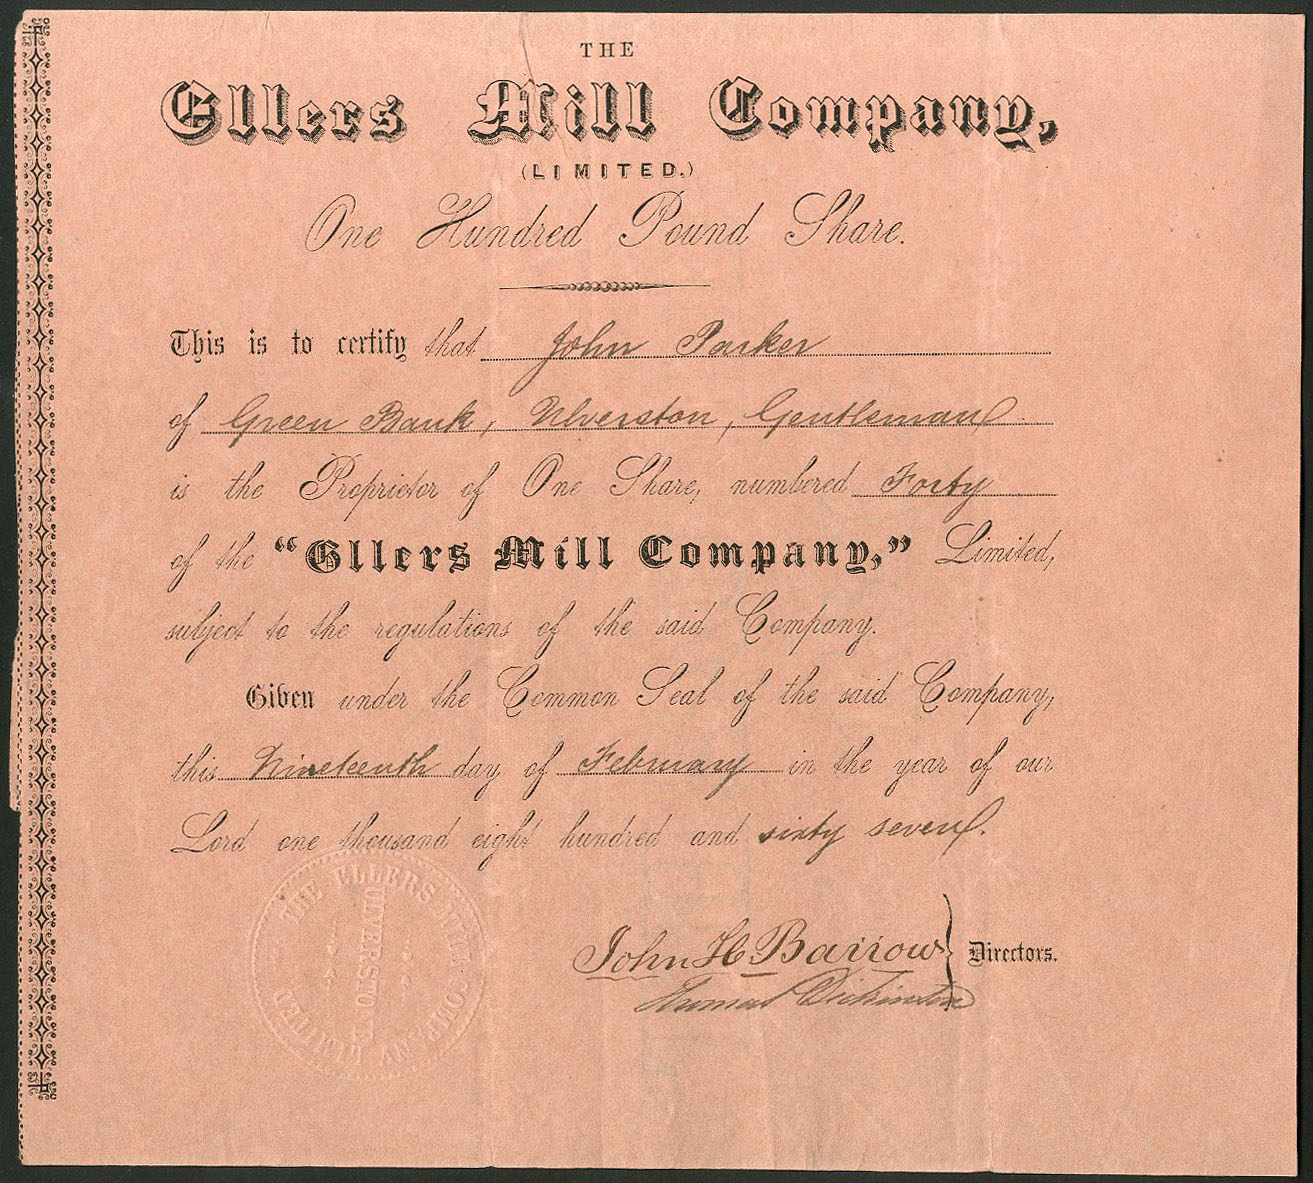 THE
Ellers Mill Company,
(LIMITED.)
One Hundred Pound Share.
This is to certify that John Parker
of Green Bank, Ulverston, Gentleman
is the Proprietor of One Share, numbered Forty
of the "Ellers Mill Company," Limited,
subject to the regulations of the said Company.
Given under the Common Seal of the said Company,
this Nineteenth day of February in the year of our
Lord one thousand eight hundred and sixty seven.
THE ELLERS MILL COMPANY LIMITED
ULVERSTONE
John H Barrow
Directors.
Thomas Dickinson